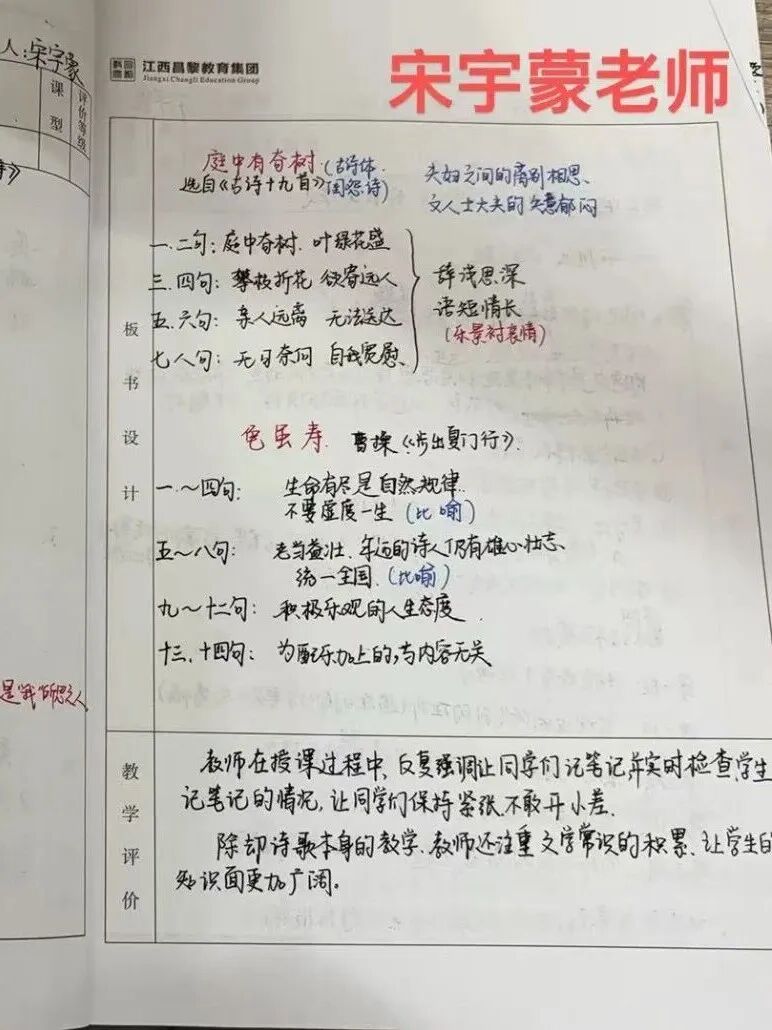 江西昌黎教育集团
Jiangxi Changli Education Group
宋宇蒙老师
人:宋宇蒙
课型
评价等级
诗》
庭中有奇树(古诗体
选自《古诗十九首》闺怨诗)
夫妇之间的离别相思、
文人士大夫的失意郁闷
一.二句:庭中奇树.叶绿花盛
三.四句:攀枝折花 欲寄远人
五.六句:亲人远离 无法送达
七八句:无可奈何 自我宽慰.
辞浅思深
语短情长
(乐景衬哀情)
板书设计
龟虽寿. 曹操《步出夏门行》.
一.～四句: 生命有尽是自然规律.
不要虚度一生(比喻)
五～八句: 老当益壮、年迈的诗人仍有雄心壮志、
统一全国.(比喻)
九～十二句: 积极乐观的人生态度.
十三.十四句: 为配乐加上的,与内容无关
是我所思之人
教学评价
教师在授课过程中、反复强调让同学们记笔记并实时检查学生
记笔记的情况,让同学们保持紧张.不敢开小差.
除却诗歌本身的教学、教师还注重文学常识的积累、让学生的
知识面更加广阔。